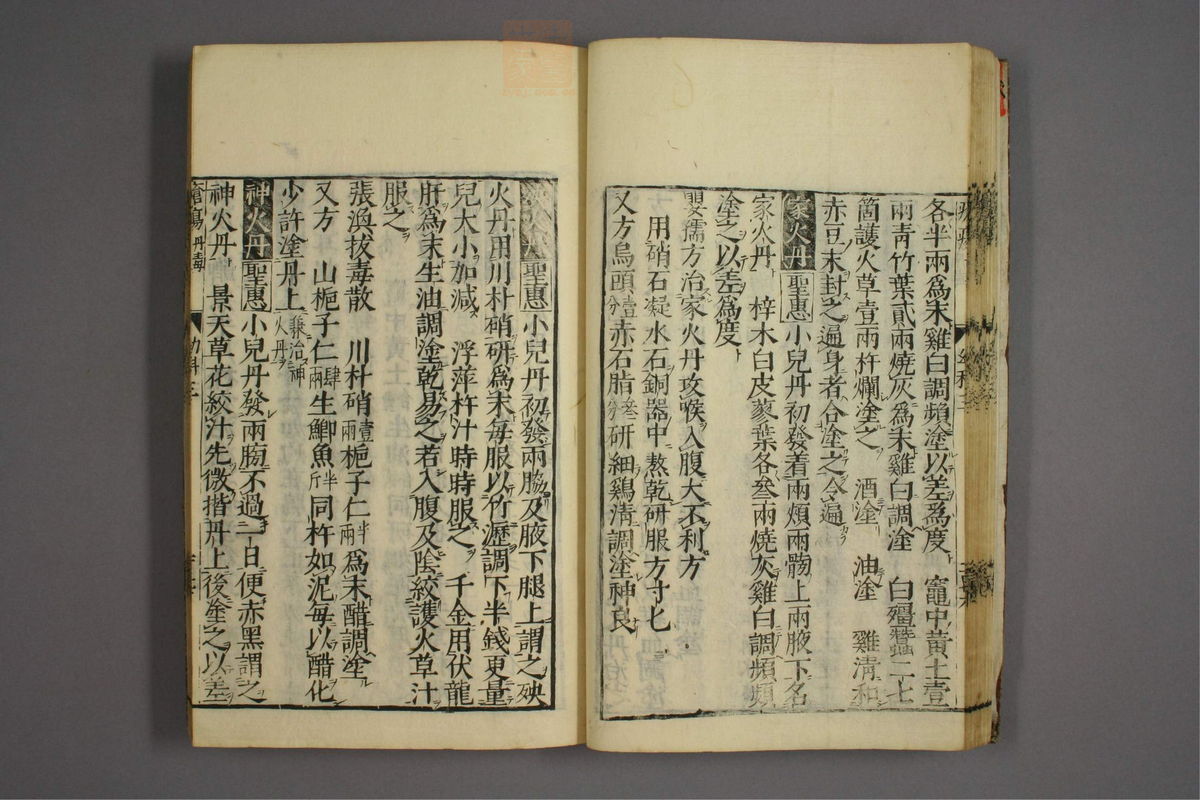 各半兩爲末雞白調頻塗以差爲度 竈中黃土壹
兩青竹葉貳兩燒灰爲末雞白調塗 白殭蠶二七
箇護火草壹兩杵爛塗之 酒塗 油塗 雞清和
赤豆末封之遍身者合塗之令遍
家火丹 聖惠 小兒丹初發着兩頰兩髈上兩腋下名
家火丹 梓木白皮蓼葉各叄兩燒灰雞白調頻頻
塗之以差爲度
嬰孺方治家火丹攻喉入腹大不利方
用硝石凝水石銅器中熬乾研服方寸匕
又方烏頭壹分赤石脂叄分研細鷄清調塗神良
聖惠 小兒丹初發兩脇及腋下腿上謂之殃
火丹用川朴硝研爲末每服以竹瀝調下半錢更量
兒大小加減 浮萍杵汁時時服之 千金用伏龍
肝爲末生油調塗乾易之若入腹及陰絞護火草汁
服之
張渙拔毒散 川朴硝壹兩梔子仁半兩爲末醋調塗
又方 山梔子仁肆兩生鯽魚半斤同杵如泥每以醋化
少許塗丹上兼治神火丹
神火丹 聖惠 小兒丹發兩膀不過一日便赤黑謂之
神火丹 景天草花絞汁先微揩丹上後塗之以差
瘡瘍 丹毒